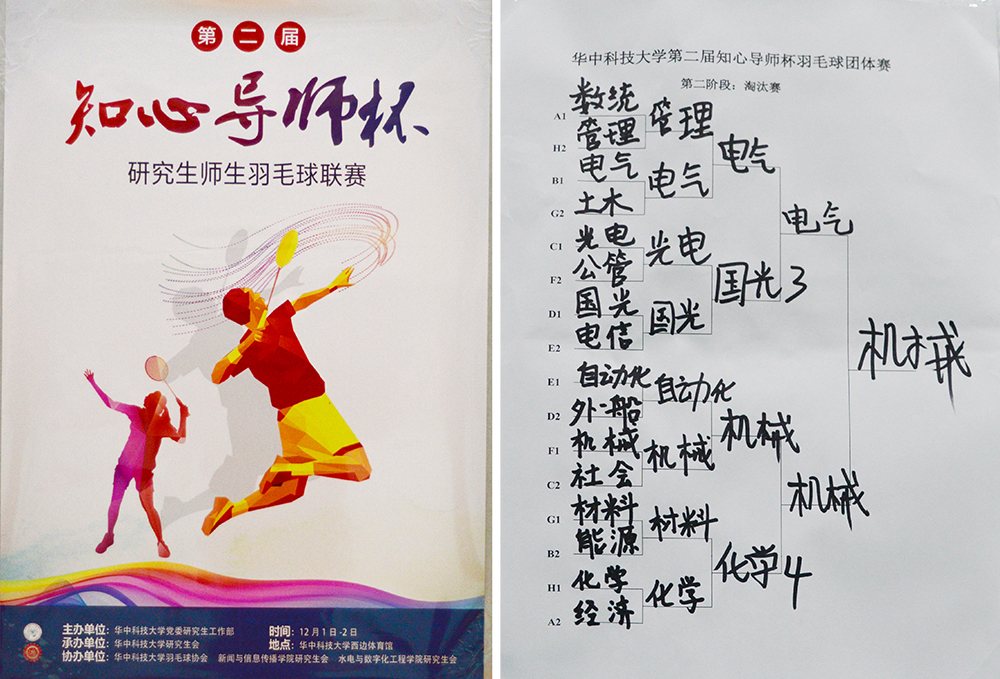 第二届
知心导师杯
研究生师生羽毛球联赛
主办单位：华中科技大学党委研究生工作部 时间：12月1日-2日
承办单位：华中科技大学研究生会 地点：华中科技大学西边体育馆
协办单位：华中科技大学羽毛球协会 新闻与信息传播学院研究生会 水电与数字化工程学院研究生会
华中科技大学第二届知心导师杯羽毛球团体赛
第二阶段：淘汰赛
A1 数统
管理
H2 管理
电气
B1 电气
电气
G2 土木
电气
C1 光电
光电
F2 公管
国光3
D1 国光
国光
E2 电信
机械
E1 自动化
自动化
D2 外-船
机械
F1 机械
机械
C2 社会
机械
G1 材料
材料
B2 能源
化学4
H1 化学
化学
A2 经济